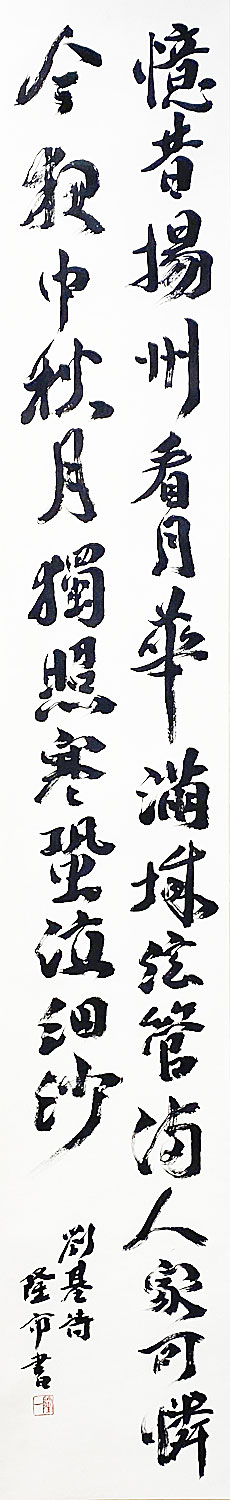 憶昔揚州看月華滿城弦管滿人家可憐
今夜中秋月獨照寒蛩泣細沙
劉基詩
隆市書